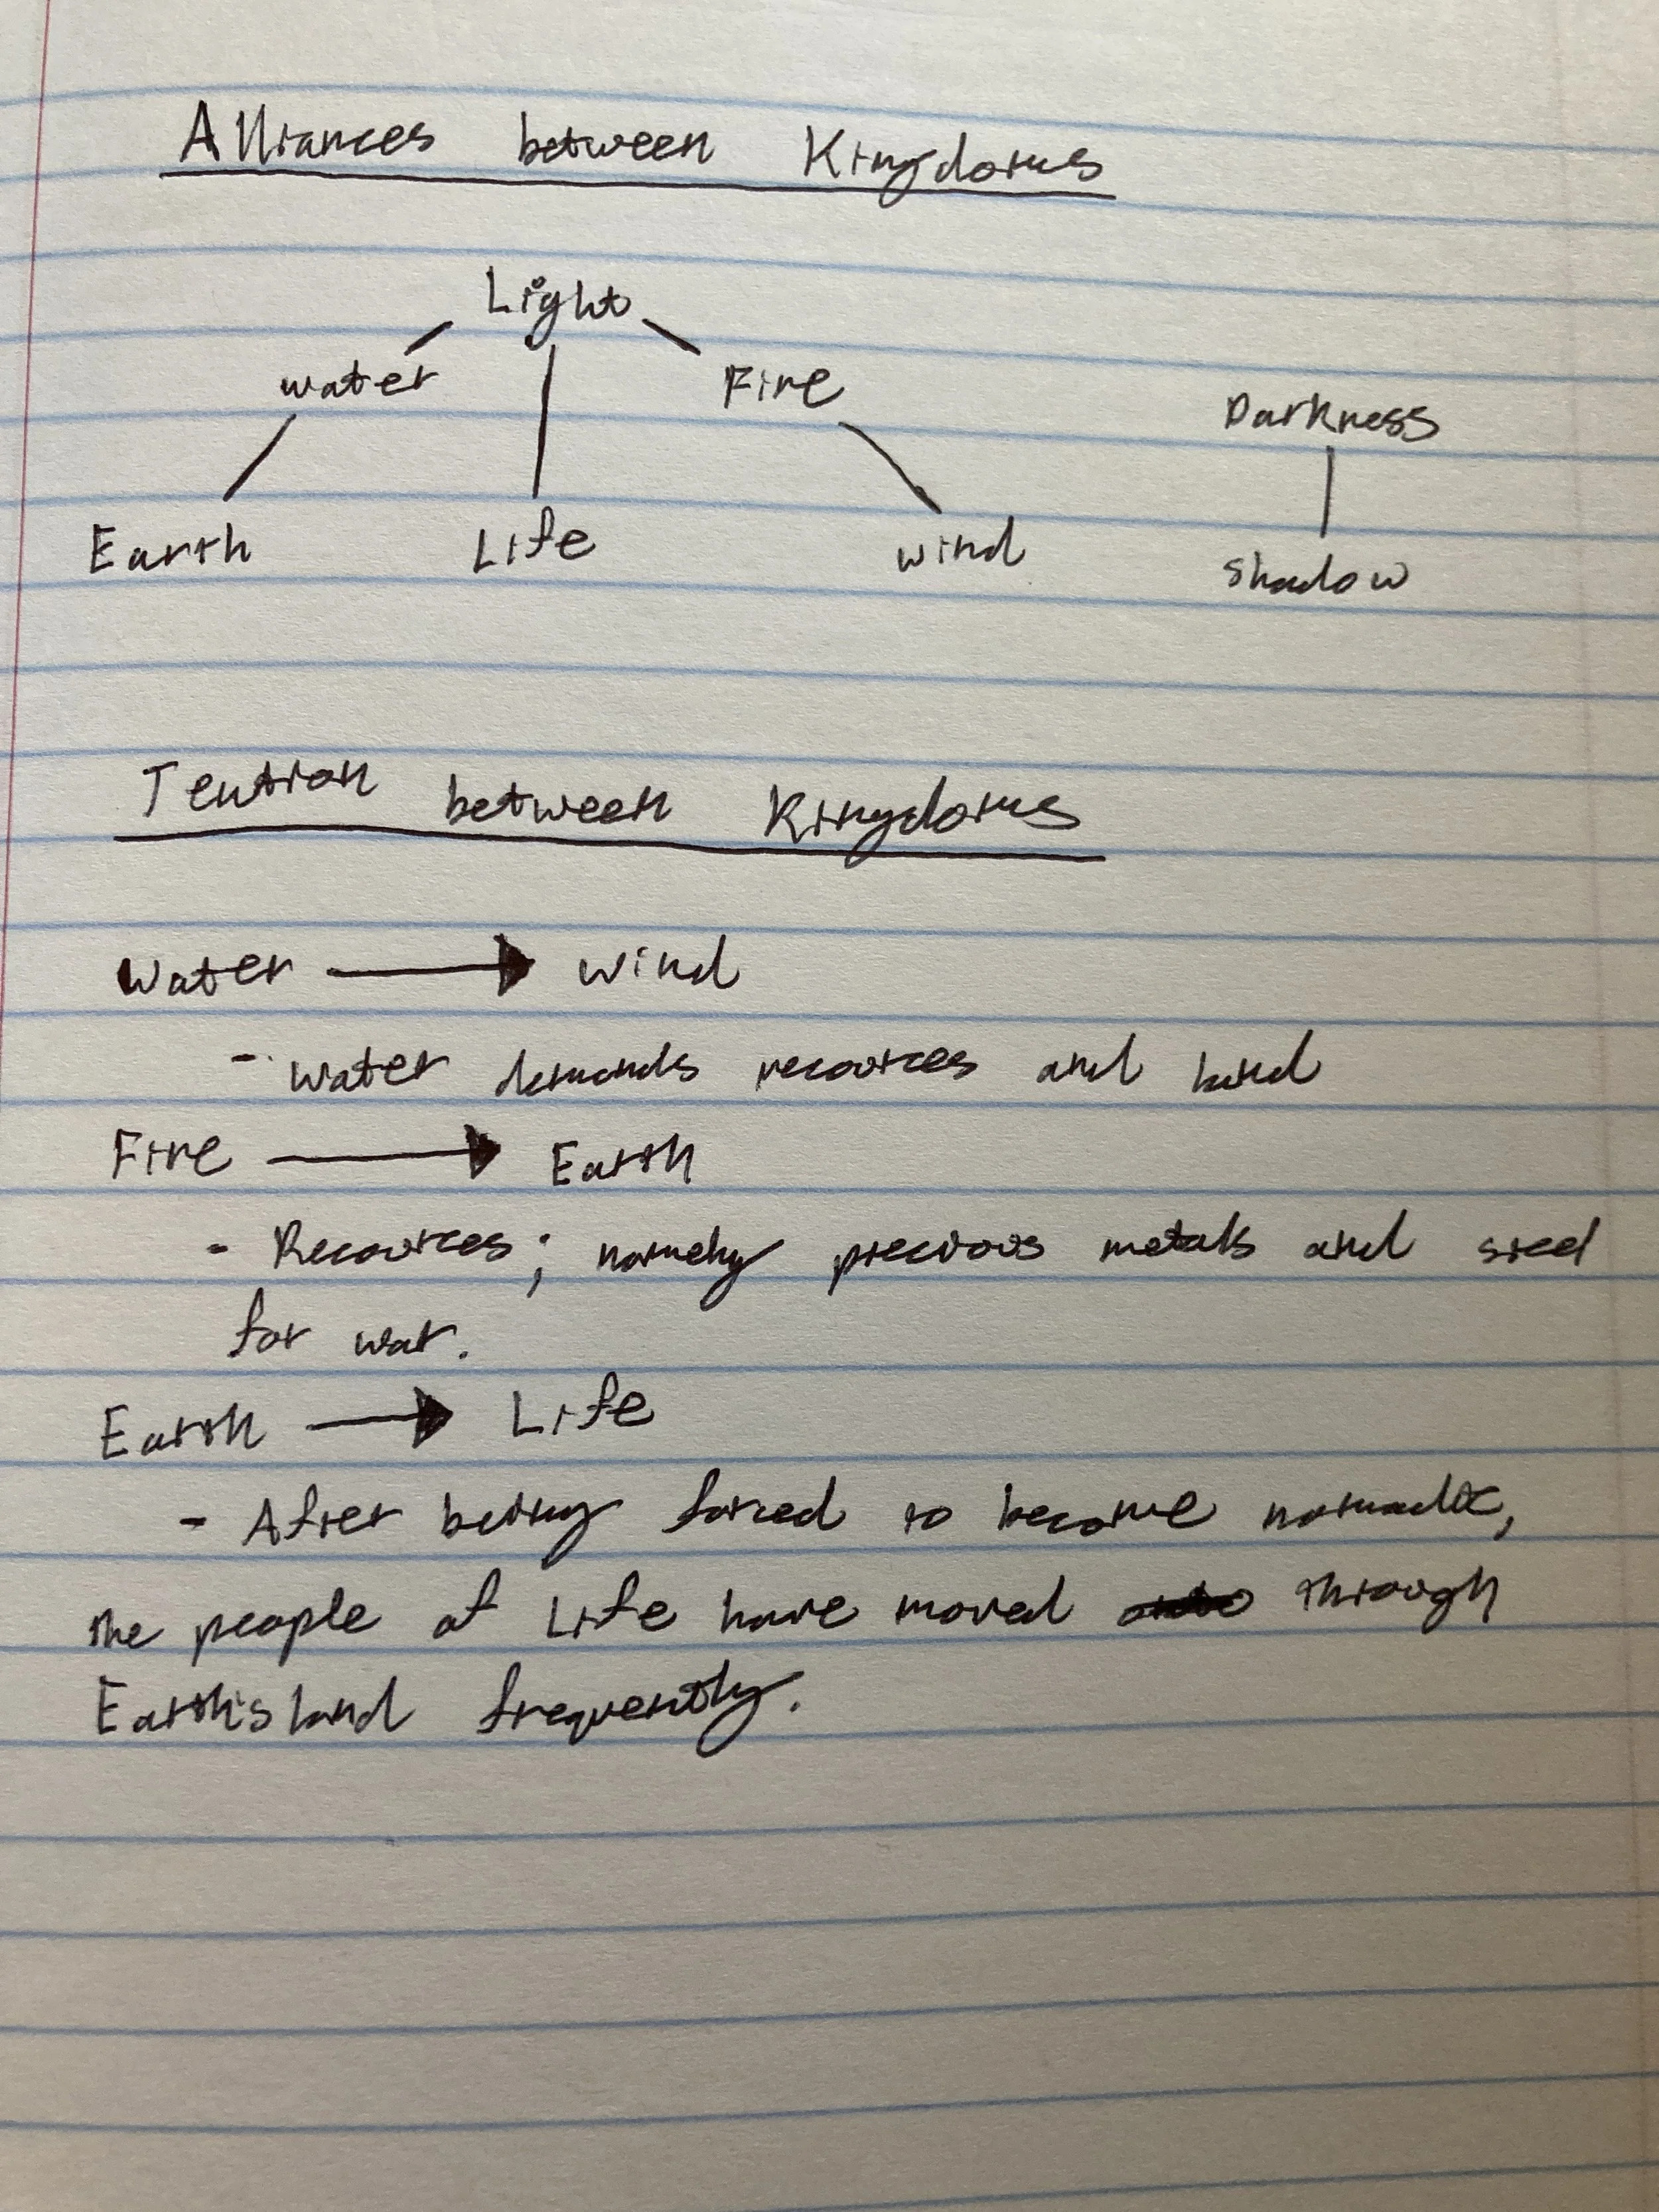 Alliances between Kingdoms
Light
water Fire
Darkness
Earth Life wind
shadow
Tention between Kingdoms
Water → Wind
- Water demands recources and land
Fire → Earth
- Recources; namely precious metals and steel
for war.
Earth → Life
- After being forced to become nomadic,
the people of Life have moved through
Earth's land frequently.